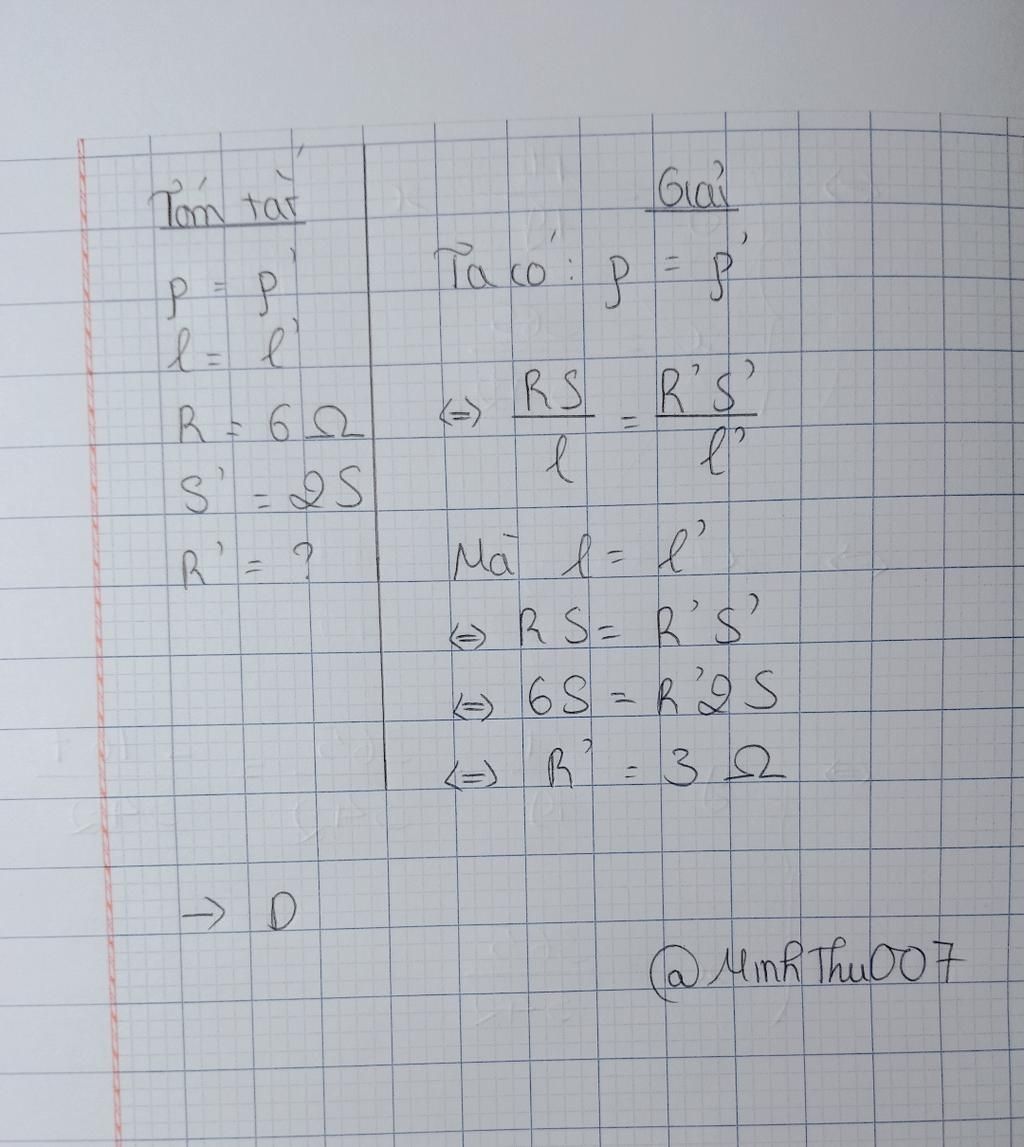 Tóm tắt
ρ = ρ'
l = l'
R = 6 Ω
S' = 2S
R' = ?
Giải
Ta có: ρ = ρ'
⇔ RS / l = R'S' / l'
Mà l = l'
⇔ RS = R'S'
⇔ 6S = R'2S
⇔ R' = 3 Ω
→ D
@MinhThu007